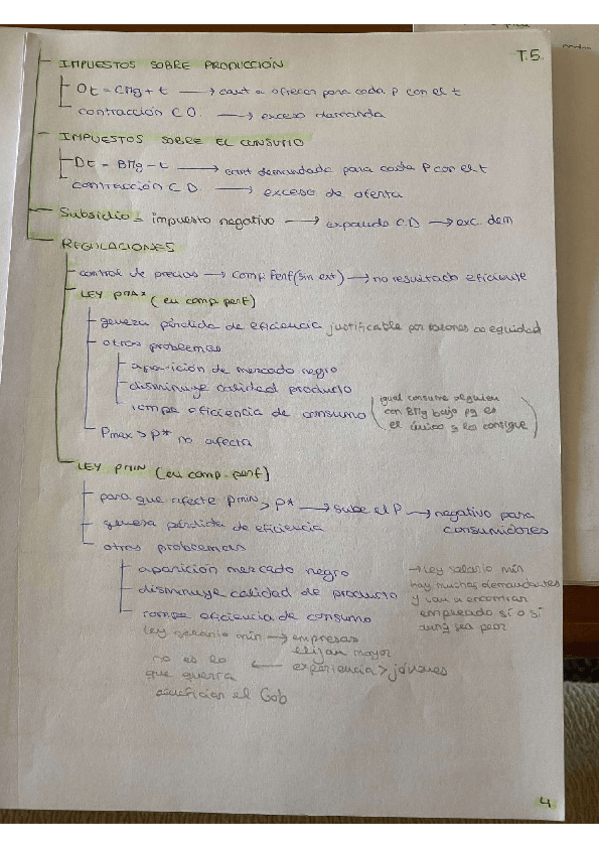 T.5
IMPUESTOS SOBRE PRODUCCIÓN
Ot = CMg + t → cant a ofrecer para cada P con el t
contracción C O. → exceso demanda
IMPUESTOS SOBRE EL CONSUMO
Dt = BMg - t → cant demandada para cada P con el t
contracción C D. → exceso de oferta
Subsidio = impuesto negativo → expando CD → exc. dem
REGULACIONES
control de precios → comp perf (sin ext) → no resultado eficiente
LEY PMAX (en comp. perf)
genera pérdida de eficiencia justificable por razones de equidad
otros problemas
aparición de mercado negro
disminuye calidad producto
rompe eficiencia de consumo (igual consume alguien
con BMg bajo pq es
el único q lo consigue)
Pmax > P* no afecta
LEY PMIN (en comp. perf)
para que afecte pmin > p* → sube el P → negativo para
consumidores
genera pérdida de eficiencia
otros problemas
aparición mercado negro
disminuye calidad de producto
rompe eficiencia de consumo
→ ley salario min
hay muchos demandantes
y van a encontrar
empleado sí o sí
aunq sea peor
ley salario min → empresas
elijan mayor
experiencia > jóvenes
← no es lo
que querría
el Gob
4